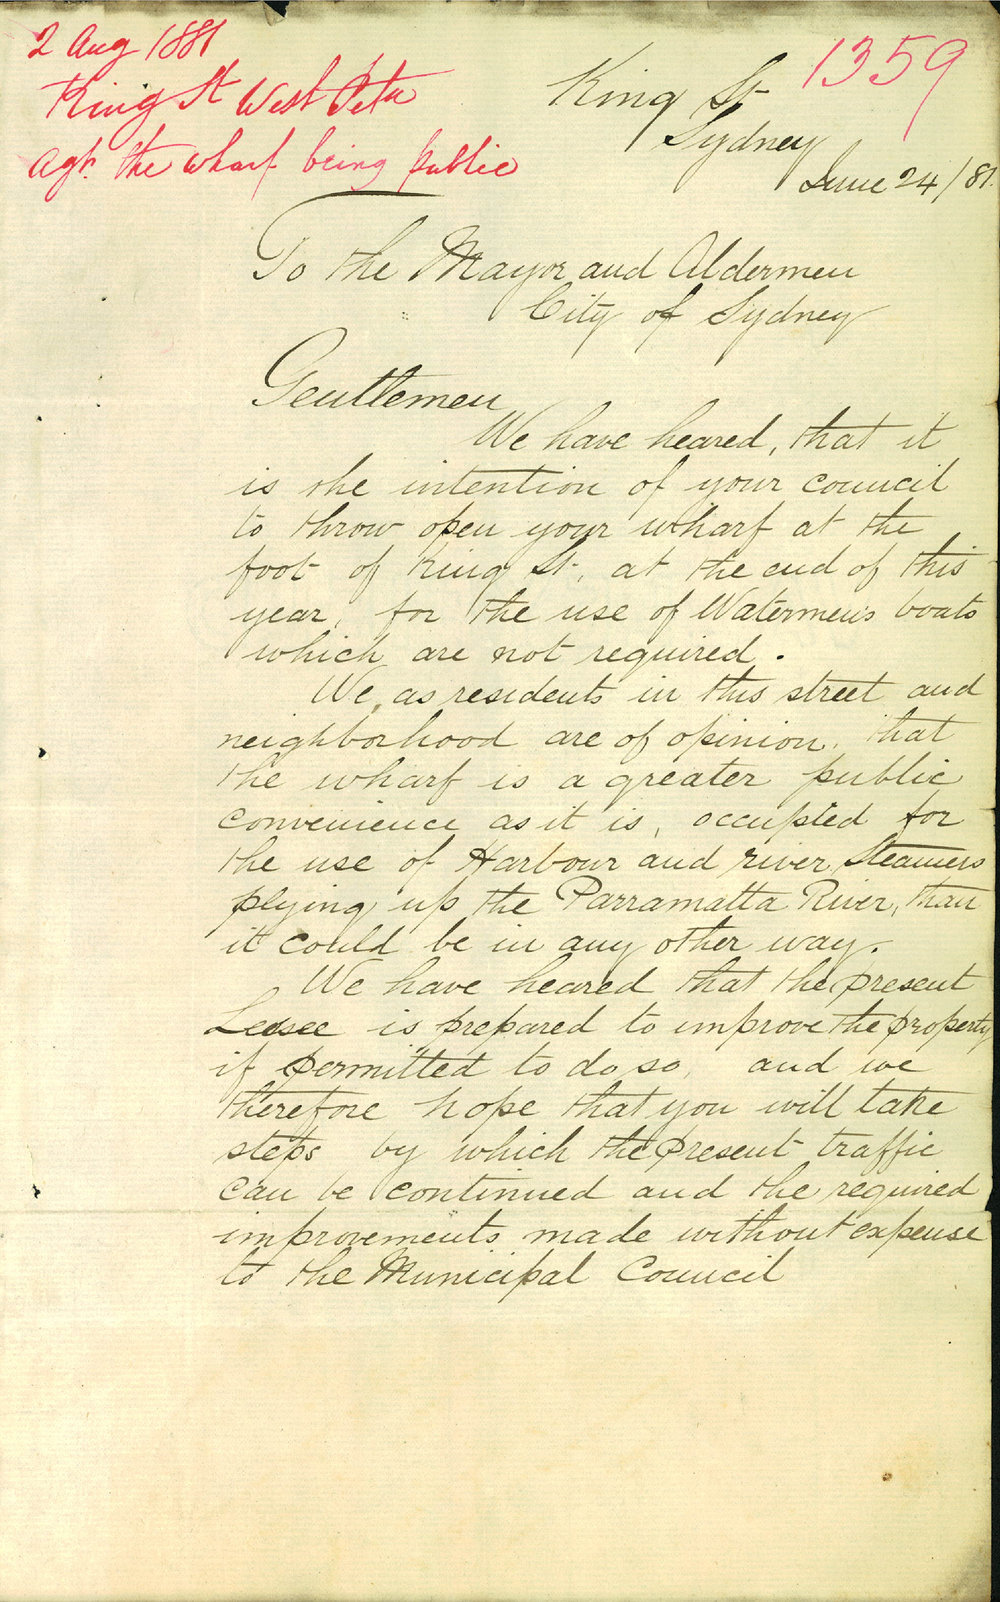 2 Aug 1881
King St West Petn
agst. the wharf being public
1359
King St
Sydney
June 24/81.
To the Mayor and Aldermen
City of Sydney
Gentlemen
We have heared, that it
is the intention of your council
to throw open your wharf at the
foot of King St, at the end of this
year, for the use of Watermen's boats
which are not required.
We, as residents in this street and
neighborhood are of opinion, that
the wharf is a greater public
convenience as it is, occupted for
the use of Harbour and river Steamers
plying up the Parramatta River, than
it could be in any other way.
We have heared that the present
Lessee is prepared to improve the property
if permitted to do so, and we
therefore hope that you will take
steps by which the present traffic
can be continued and the required
improvements made without expense
to the Municipal Council